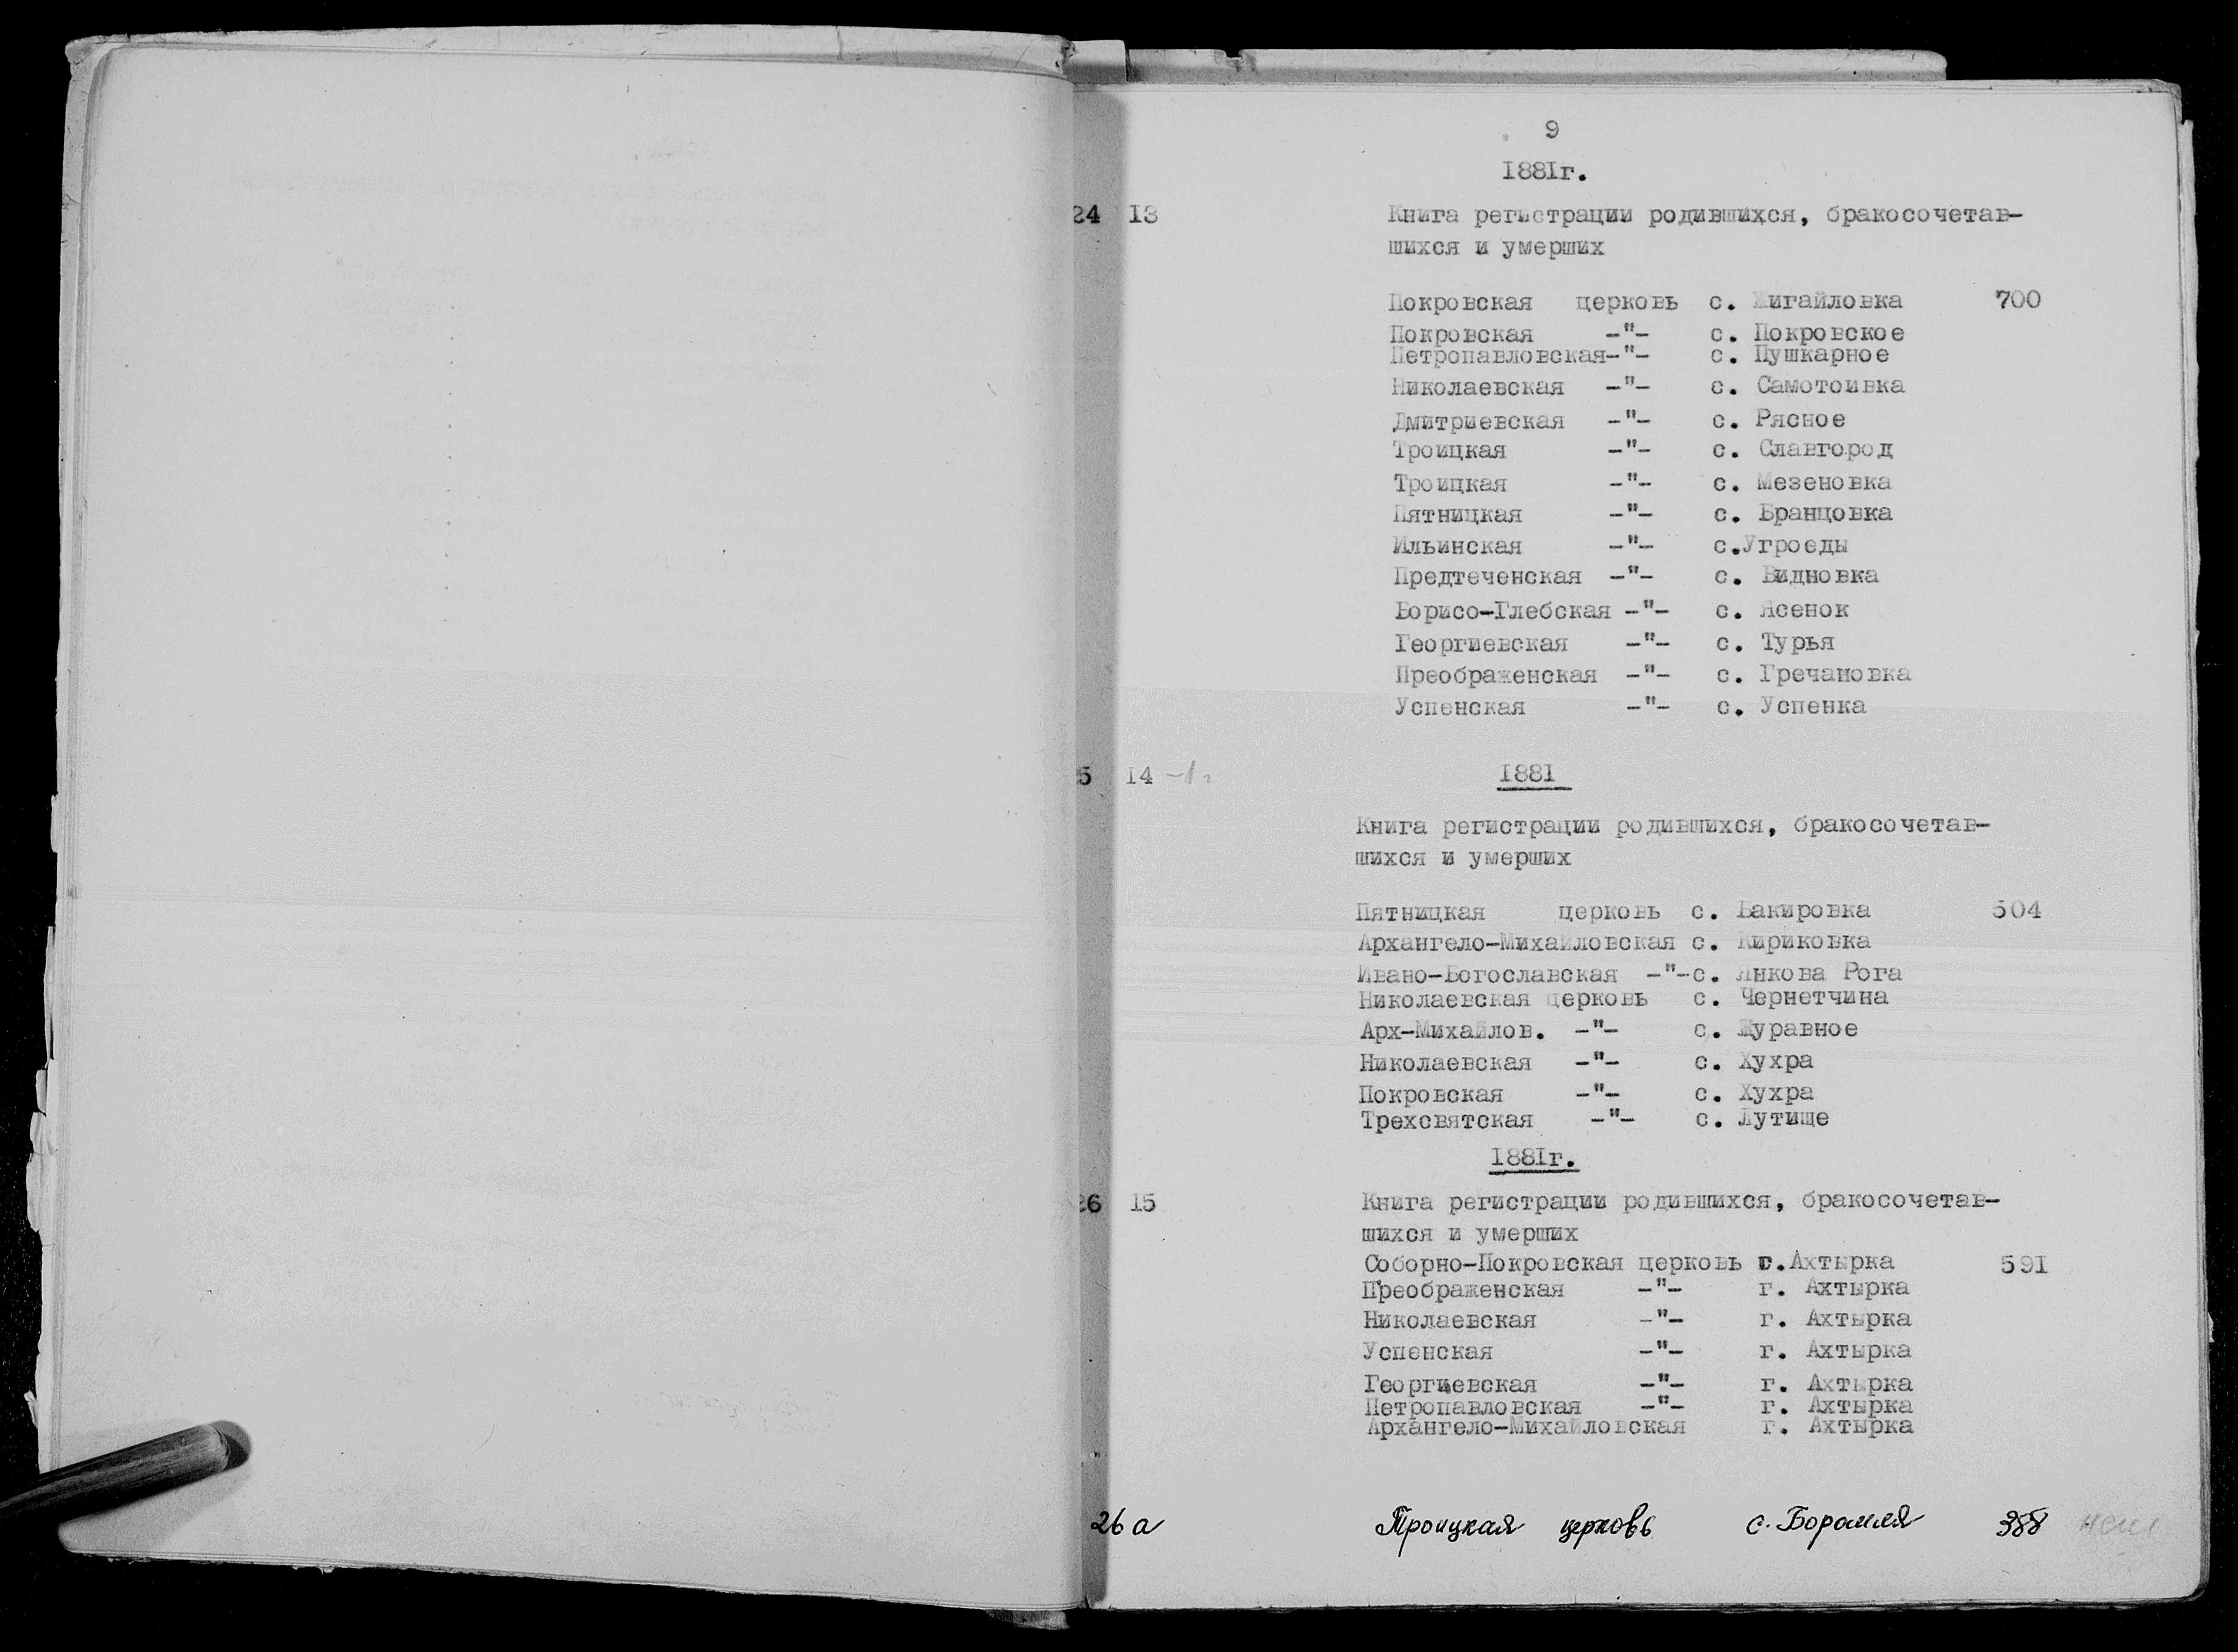 9
1881г.
24 13 Книга регистрации родившихся, бракосочетав-
шихся и умерших
Покровская церковь с. Жигайловка 700
Покровская -"- с. Покровское
Петропавловская-"- с. Пушкарное
Николаевская -"- с. Самотоивка
Дмитриевская -"- с. Рясное
Троицкая -"- с. Славгород
Троицкая -"- с. Мезеновка
Пятницкая -"- с. Бранцовка
Ильинская -"- с.Угроеды
Предтеченская -"- с. Видновка
Борисо-Глебская -"- с. Ясенок
Георгиевская -"- с. Турья
Преображенская -"- с. Гречановка
Успенская -"- с. Успенка
5 14 1881
Книга регистрации родившихся, бракосочетав-
шихся и умерших
Пятницкая церковь с. Бакировка 504
Архангело-Михайловская с. Кириковка
Ивано-Богославская -"-с. Янкова Рога
Николаевская церковь с. Чернетчина
Арх-Михайлов. -"- с. Журавное
Николаевская -"- с. Хухра
Покровская -"- с. Хухра
Трехсвятская -"- с. Лутище
1881г.
26 15 Книга регистрации родившихся, бракосочетав-
шихся и умерших
Соборно-Покровская церковь г.Ахтырка 591
Преображенская -"- г. Ахтырка
Николаевская -"- г. Ахтырка
Успенская -"- г. Ахтырка
Георгиевская -"- г. Ахтырка
Петропавловская -"- г. Ахтырка
Архангело-Михайловская г. Ахтырка
26а Троицкая церковь с. Боромля 388